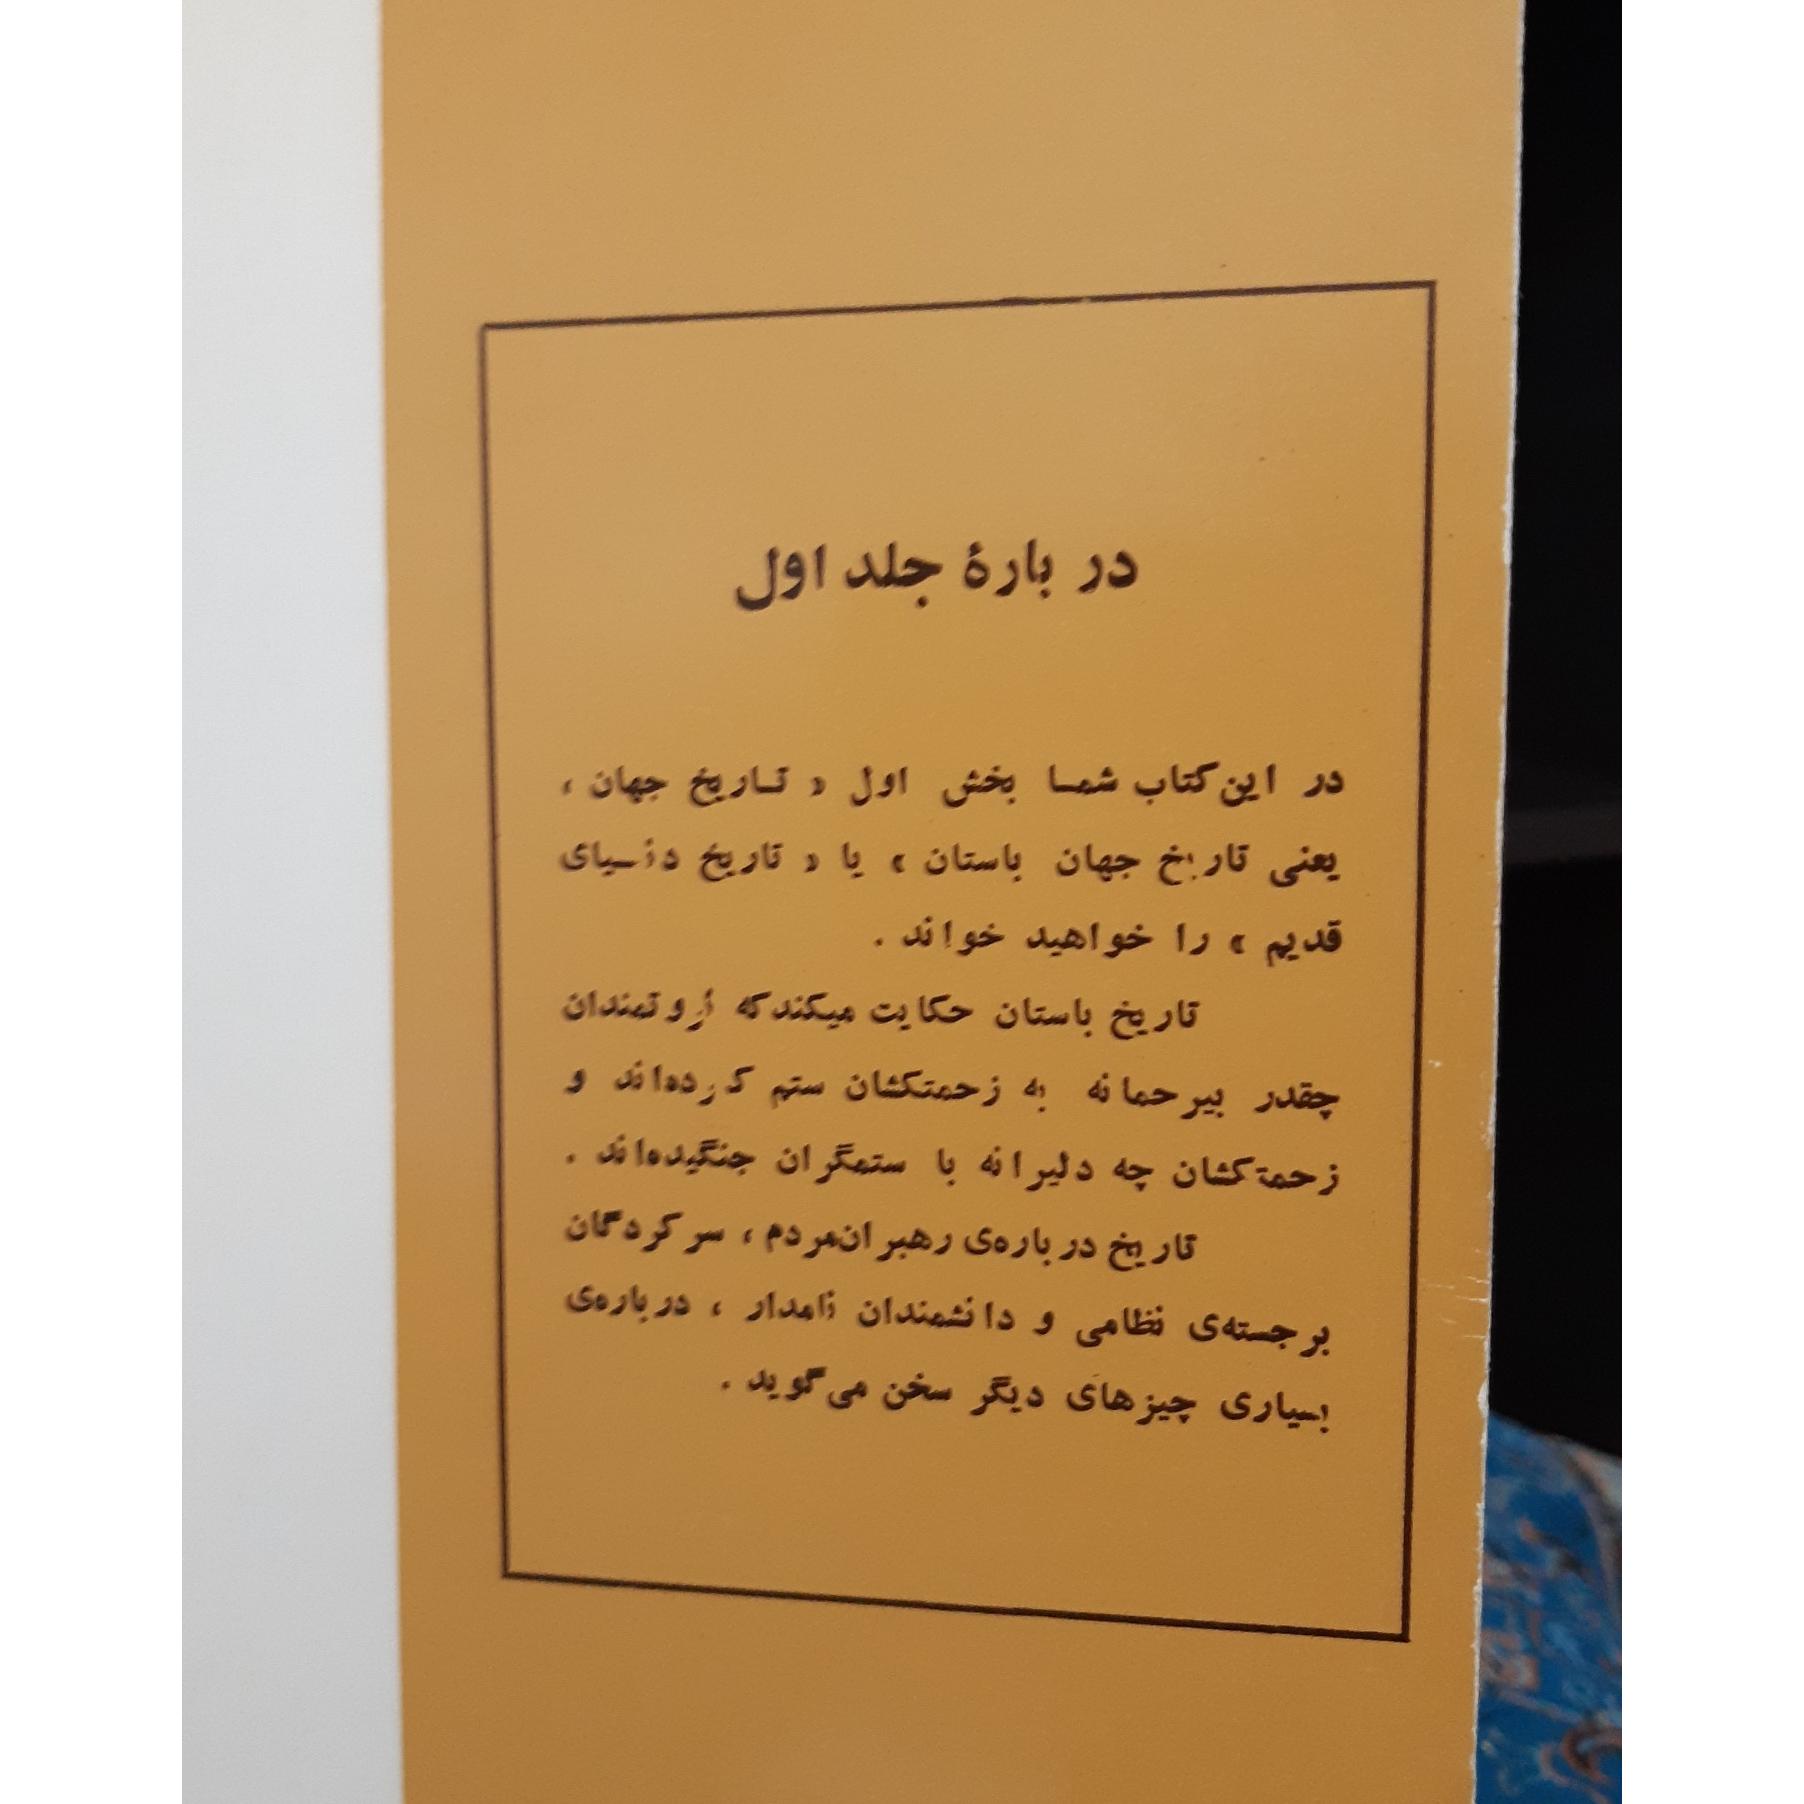 در بارهٔ جلد اول
در این کتاب شما بخش اول « تاریخ جهان ،
یعنی تاریخ جهان باستان » یا « تاریخ دنیای
قدیم » را خواهید خواند .
تاریخ باستان حکایت میکند که ثروتمندان
چقدر بیرحمانه به زحمتکشان ستم کرده‌اند و
زحمتکشان چه دلیرانه با ستمگران جنگیده‌اند .
تاریخ درباره‌ی رهبران مردم ، سرکردگان
برجسته‌ی نظامی و دانشمندان نامدار ، درباره‌ی
بسیاری چیزهای دیگر سخن می‌گوید .